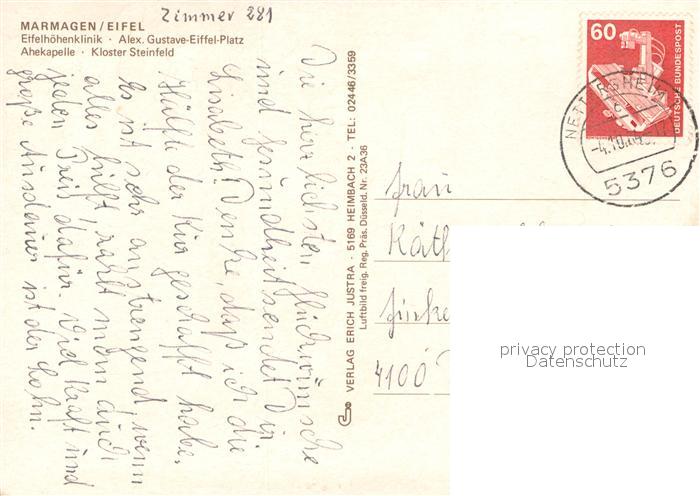 Zimmer 281
MARMAGEN/EIFEL
Eifelhöhenklinik · Alex. Gustave-Eiffel-Platz
Ahekapelle · Kloster Steinfeld
Die herzlichsten Glückwünsche
und Gesundheit sendet Dir
Lisabeth. Denke, daß ich die
Hälfte der Kur geschafft habe.
Es ist sehr anstrengend, wenn
alles hilft, zahlt man auch
jeden Preis dafür. Viel Kraft und
große Ausdauer ist der Lohn.
VERLAG ERICH JUSTRA · 5169 HEIMBACH 2 · TEL: 02446/3359
Luftbild freig. Reg. Präs. Düsseld. Nr. 23A36
60
DEUTSCHE BUNDESPOST
NETTERSHEIM
5376
Frau
Käth
4100
privacy protection
Datenschutz